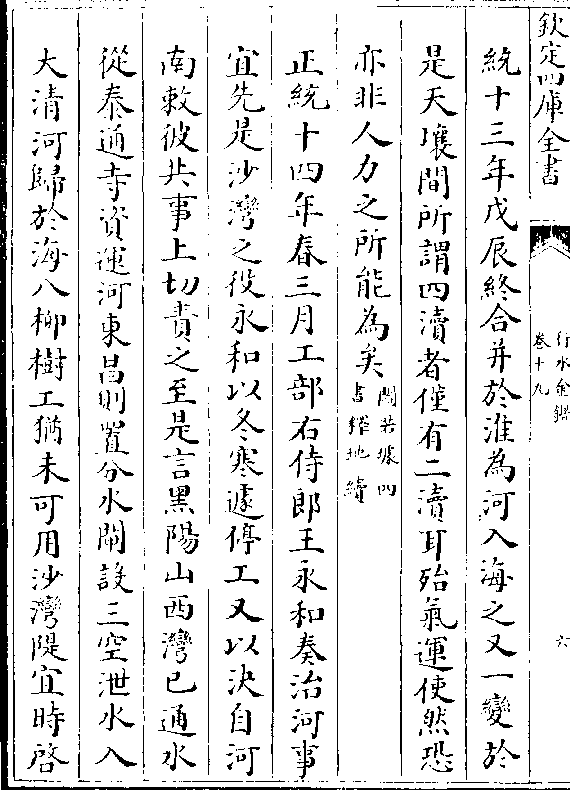 欽定四庫全書
行水金鑑
卷十九
六
統十三年戊辰終合并於淮為河入海之又一變於
是天壤間所謂四瀆者僅有二瀆耳殆氣運使然恐
亦非人力之所能為矣
閻若璩四
書釋地續
正統十四年春三月工部右侍郎王永和奏治河事
宜先是沙灣之役永和以冬寒遽停工又以決自河
南敕彼共事上切責之至是言黑陽山西灣已通水
從泰通寺資運河東昌則置分水閘設三空泄水入
大清河歸於海八柳樹工猶未可用沙灣隄宜時啓